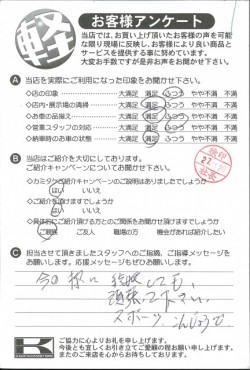 軽
お客様アンケート
当店では、お買い上げ頂いたお客様の声を可能
な限り現場に反映し、お客様により良い商品と
サービスを提供する事に努めています。
大変お手数ですが是非お声をお聞かせ下さい。
A 当店を実際にご利用になった印象をお聞かせ下さい。
◇店の印象 大満足 満足 ふつう やや不満 不満
◇店内・展示場の清掃 大満足 満足 ふつう やや不満 不満
◇お車の品揃え 大満足 満足 ふつう やや不満 不満
◇営業スタッフの対応 大満足 満足 ふつう やや不満 不満
◇納車時のお車の状態 大満足 満足 ふつう やや不満 不満
B 当店はご紹介を大切にしております。
ご紹介キャンペーンについてお聞かせ下さい。
◇カミタケご紹介キャンペーンのご説明はありましたでしょうか
はい いいえ
◇ご紹介頂けますでしょうか
はい いいえ
◇具体的にご紹介頂ける方とのご関係をお聞かせ頂けますでしょうか
ご親戚 ご友人 職場の方 機会があれば紹介したい
C 担当させて頂きましたスタッフへのご指摘、ご指導メッセージを
お願いします。応援メッセージもぜひお願いします。
今の様に
頑張って下さい。
スポーツ こんじょうで
K
ご協力に心よりお礼を申し上げます。
今後とも宜しくお引き立てご愛顧の程お願い申し上げます。
またのご来店を心からお待ちしております。